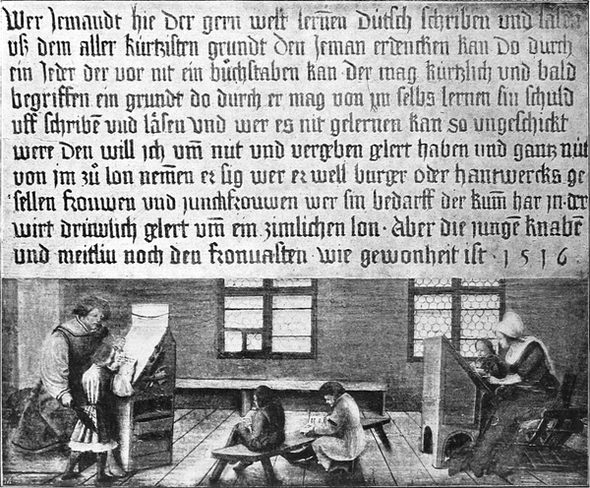 Wer Jemandt hie der gern welt lernen Dütsch schriben und läsen
uß dem aller kürtzisten grundt den Jeman erdencken kan Do durch
ein Jeder der vor nit ein büchstaben kan der mag kürtzlich und bald
begriffen ein grundt do durch er mag von jm selbs lernen sin schuld
uff schribē vnd läsen Vnd wer es nit gelernen kan so vngeschickt
were Den will jch vm̄ nüt und vergeben gelert haben und gantz nüt
von jm zů lon nem̄en er sig wer er well burger oder hantwercks ge
sellen frouwen und junckfrouwen wer sin bedarff der kum̄ har jn der
wirt drüwlich gelert vm̄ ein zimlichen lon · Aber die junge knabē
und meitlin noch den fronuasten wie gewonheit ist · 1516 ·